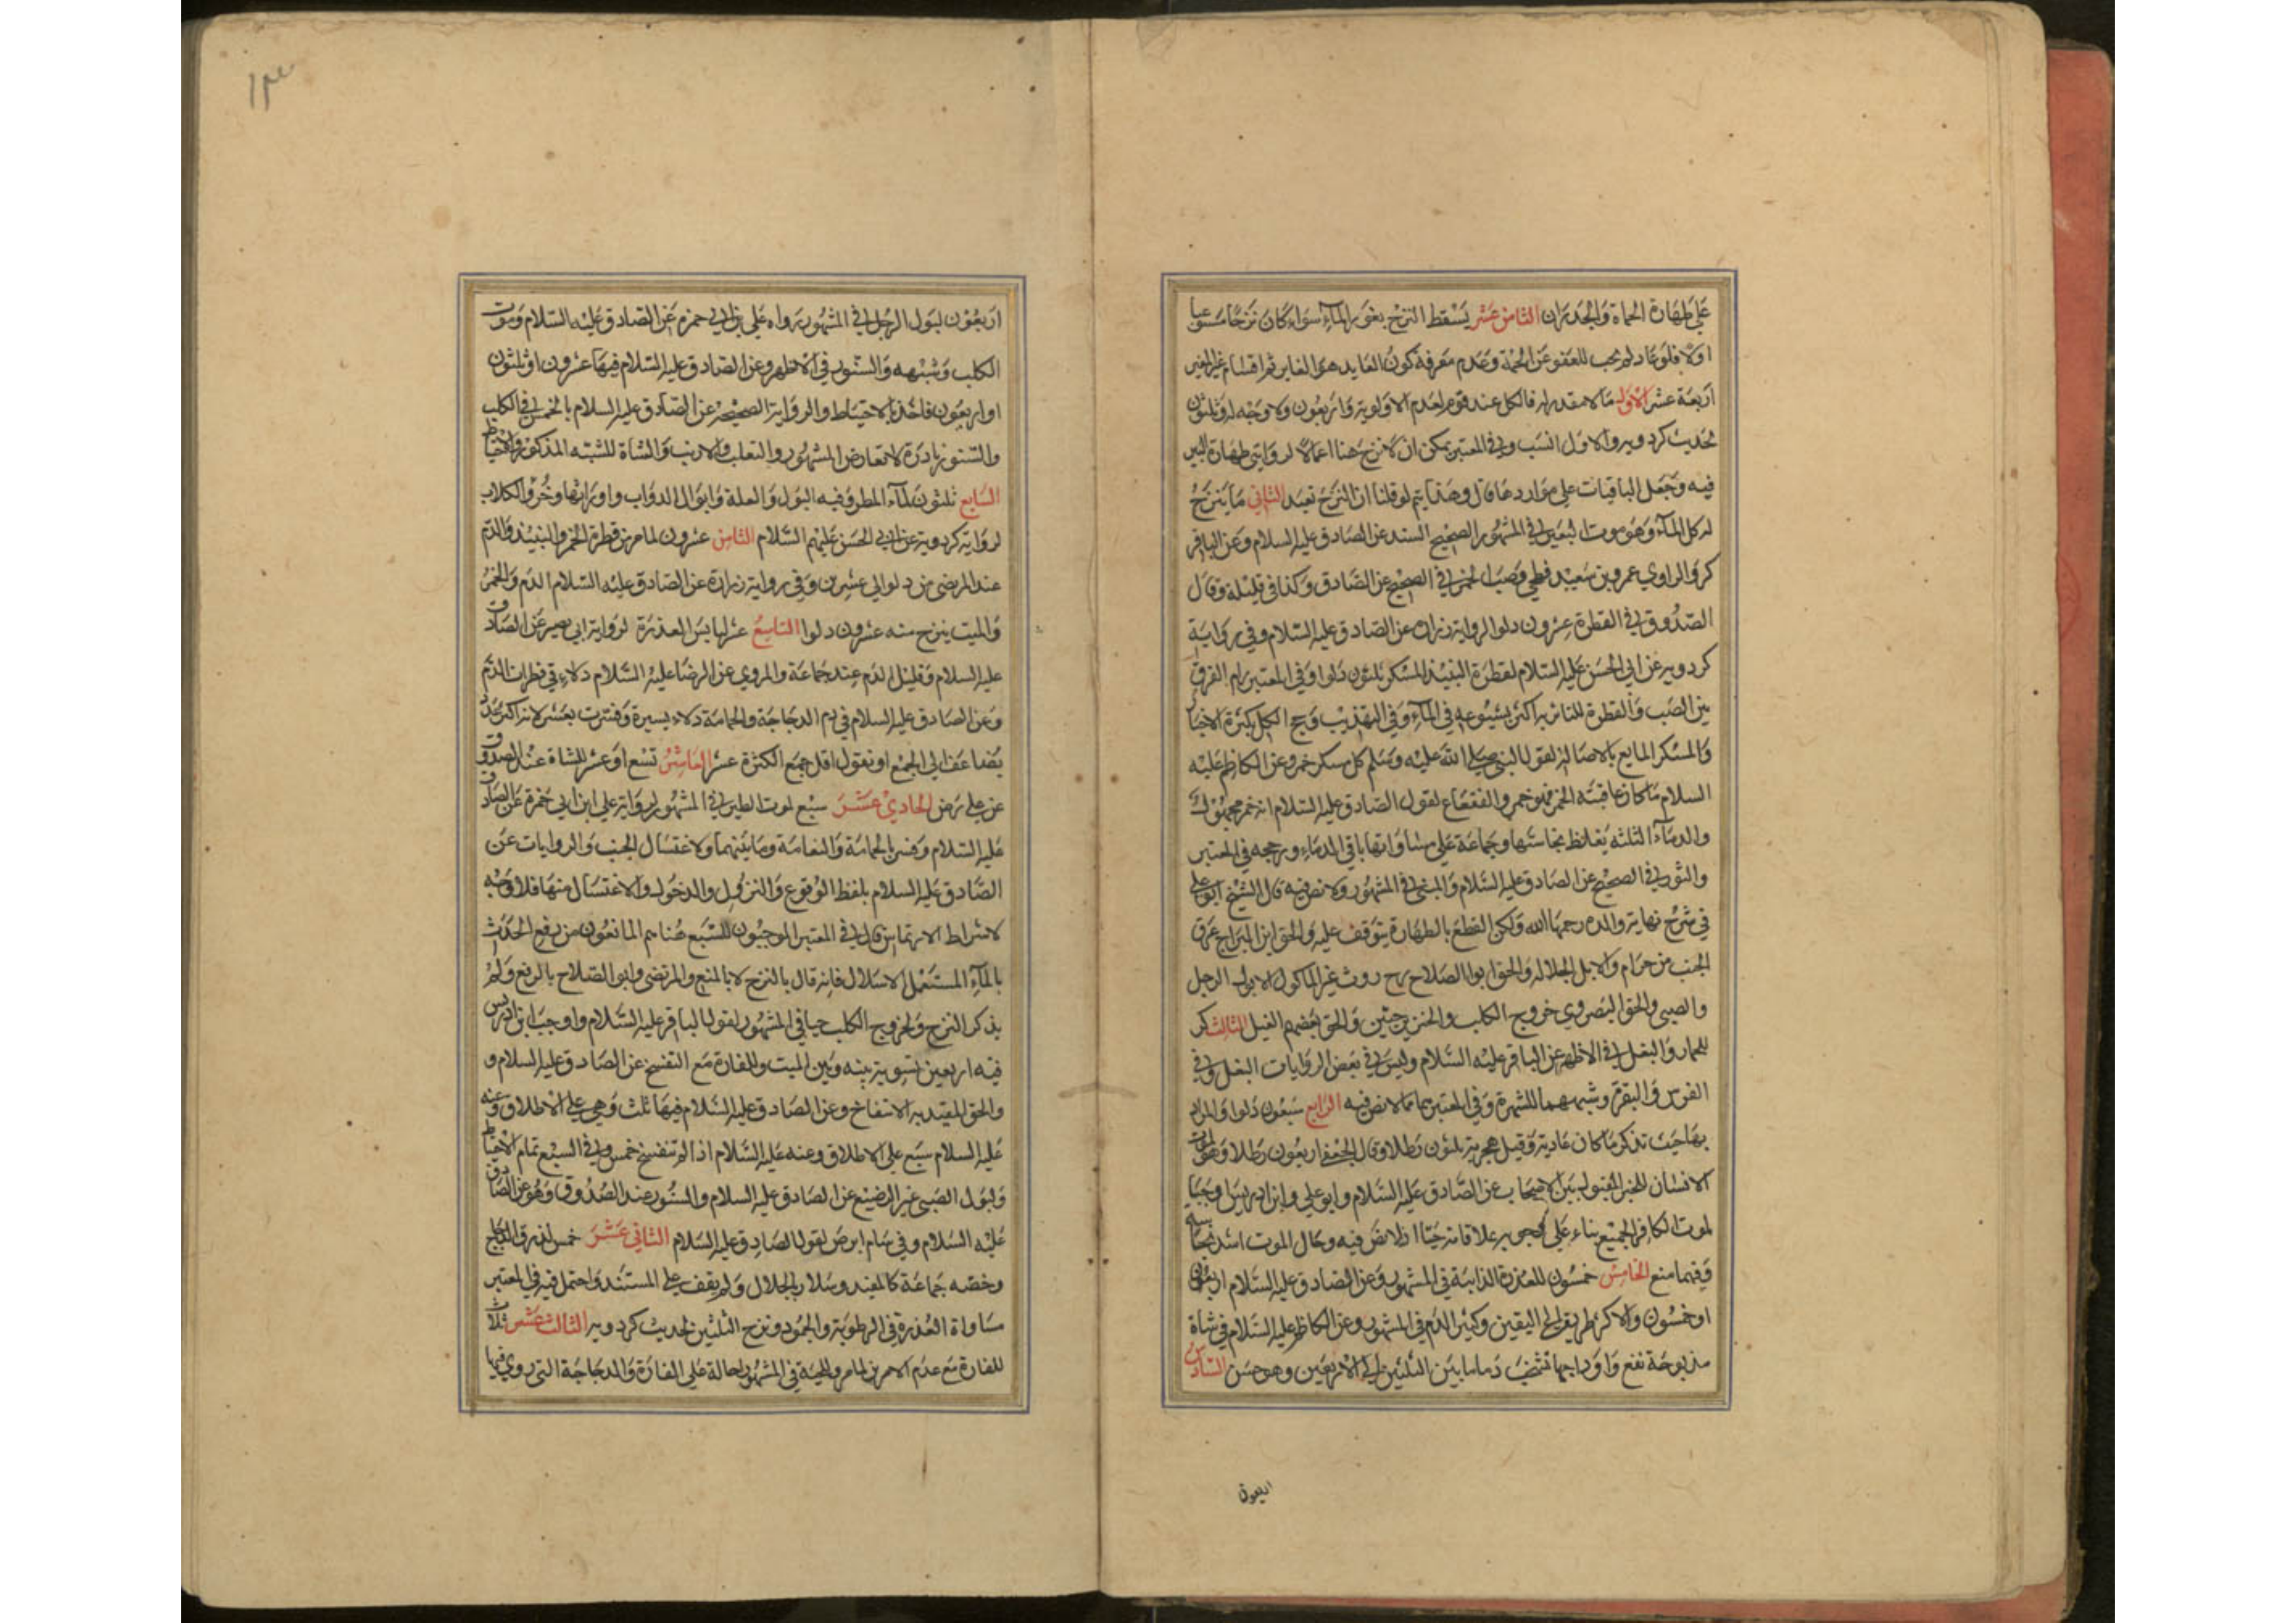 على طهارة الحماة والجدران الثامن عشر يسقط النزح بغور الماء سواء كان نزحا مستوعبا
اولا فلو عاد لم يجب للعفو عن الحمة وعدم معرفة كون العايد هو الغاير ثم اقسام غير المغير
اربعة عشر الاول ما لا مقدر له فالكل عند قوم لعدم الاولوية واربعون ولا وجه له وثلثون
لحديث كردويه والاول انسب وفي المعتبر يمكن ان لا نزح هنا اعمالا لروايتى طهارة البير
فيه وجعل الباقيات على مواردها قال وهذا يتم لو قلنا ان النزح تعبد الثاني ما ينزح
له كل الماء وهو موت البعير في المشهور الصحيح السند عن الصادق عليه السلام وعن الباقر
كر والراوي عمرو بن سعيد فطحي وصب الخمر في الصحيح عن الصادق وكذا في قليله وقال
الصدوق في القطرة عشرون دلوا لرواية زرارة عن الصادق عليه السلام وفي رواية
كردويه عن ابي الحسن عليه السلام لقطرة النبيذ المسكر ثلثون دلوا وفي المعتبر رام الفرق
بين الصب والقطرة للتاثير اكثر بشيوعه في الماء وفي التهذيب وجح الكل بكثرة الاخبار
والمسكر المايع بالاصالة لقول النبي صلى الله عليه وسلم كل مسكر خمر وعن الكاظم عليه
السلام ما كان عاقبته الخمر فهو خمر والفقاع لقول الصادق عليه السلام انه خمر مجهول
والدماء الثلثة يغلظ نجاستها وجماعة على مساواتها باقي الدماء ورجحه في المعتبر
والثور في الصحيح عن الصادق عليه السلام والمني في المشهور ولا نص فيه قال الشيخ ابو علي
في شرح نهاية والده رحمهما الله ولكن القطع بالطهارة يتوقف عليه والحق ابن البراج عرق
الجنب من حرام والابل الجلالة والحق ابو الصلاح رح روث غير الماكول الا بول الرجل
والصبي والحق البصروي خروج الكلب والخنزير حيين والحق بعضهم الفيل الثالث كر
للحمار والبغل في الاظهر عن الباقر عليه السلام وليس في بعض الروايات البغل وفي
الفرس والبقرة وشبههما للشهرة وفي المعتبر هما مما لا نص فيه الرابع سبعون دلوا والمراد
بها حيث تذكر ما كان عادية وقيل هجرية ثلثون رطلا وقال الجعفي اربعون رطلا وهو لموت
الانسان للخبر المقبول بين الاصحاب عن الصادق عليه السلام وابو علي وابن ادريس اوجبا
لموت الكافر الجميع بناء على وجوبه بملاقاته حيا اذ لا نص فيه وحال الموت اشد نجاسة
وفيهما منع الخامس خمسون للعذرة الذايبة في المشهور وعن الصادق عليه السلام اربعون
او خمسون والاكثر طريق الى اليقين وكثير الدم في المشهور وعن الكاظم عليه السلام في شاة
مذبوحة تقع واوداجها تشخب دما ما بين الثلثين الى الاربعين وهو حسن السادس
اربعون
١٣
اربعون لبول الرجل في المشهور رواه علي بن ابي حمزة عن الصادق عليه السلام وموت
الكلب وشبهه والسنور في الاظهر وعن الصادق عليه السلام فيها عشرون او ثلثون
او اربعون فاخذ بالاحتياط والرواية الصحيحة عن الصادق عليه السلام بالخمس في الكلب
والسنور نادرة لا تعارض المشهور والثعلب والارنب والشاة للشبه المذكور والاحتياط
السابع ثلثون لماء المطر وفيه البول والعلة وابوال الدواب واوراثها وخرؤ الكلاب
لرواية كردويه عن ابي الحسن عليهم السلام الثامن عشرون لما مر من قطرة الخمر والنبيذ والدم
عند المرتضى من دلو الى عشرين وفي رواية زرارة عن الصادق عليه السلام الدم والخمر
والميت ينزح منه عشرون دلوا التاسع عشر لها بس العذرة لرواية ابي بصير عن الصادق
عليه السلام وقليل الدم عند جماعة والمروي عن الرضا عليه السلام دلاء في قطرات الدم
وعن الصادق عليه السلام في دم الدجاجة والحمامة دلاء يسيرة وفسرت بعشر لانه اكثر عدد
يضاعف الى الجمع او نقول اقل جمع الكثرة عشر العاشر تسع او عشر للشاة عند الصدوق
عن علي رض الحادي عشر سبع لموت الطير في المشهور لرواية علي ابن ابي حمزة عن الصادق
عليه السلام وفسر بالحمامة والنعامة وما بينهما ولاغتسال الجنب والروايات عن
الصادق عليه السلام بلفظ الوقوع والنزول والدخول والاغتسال منها فلا وجه
لاشراط الارتماس قال في المعتبر الموجبون للسبع هنا هم المانعون من رفع الحدث
بالماء المستعمل الا سلار فانه قال بالنزح لا بالمنع والمرتضى وابو الصلاح بالرفع ولم
يذكر النزح ولخروج الكلب حيا في المشهور لقول الباقر عليه السلام واوجب ابن ادريس
فيه اربعين تسوية بينه وبين الميت وللفارة مع التفسخ عن الصادق عليه السلام و
والحق المفيد به الانتفاخ وعن الصادق عليه السلام فيها ثلث وهي على الاطلاق وعنه
عليه السلام سبع على الاطلاق وعنه عليه السلام اذا لم تتفسخ خمس وفي السبع تمام الاحتياط
ولبول الصبي غير الرضيع عن الصادق عليه السلام والسنور عند الصدوق وهو عن الصادق
عليه السلام وفي سام ابرص لقول الصادق عليه السلام الثاني عشر خمس لذرق الدجاج
وخصه جماعة كالمفيد وسلار بالجلال ولم يقف على المستند واحتمل فيه في المعتبر
مساواة العذرة في الرطوبة والجمود ونزح الثلثين لحديث كردويه الثالث عشر ثلاث
للفارة مع عدم الامرين لما مر وللحية في المشهور احالة على الفارة والدجاجة التي روي فيها